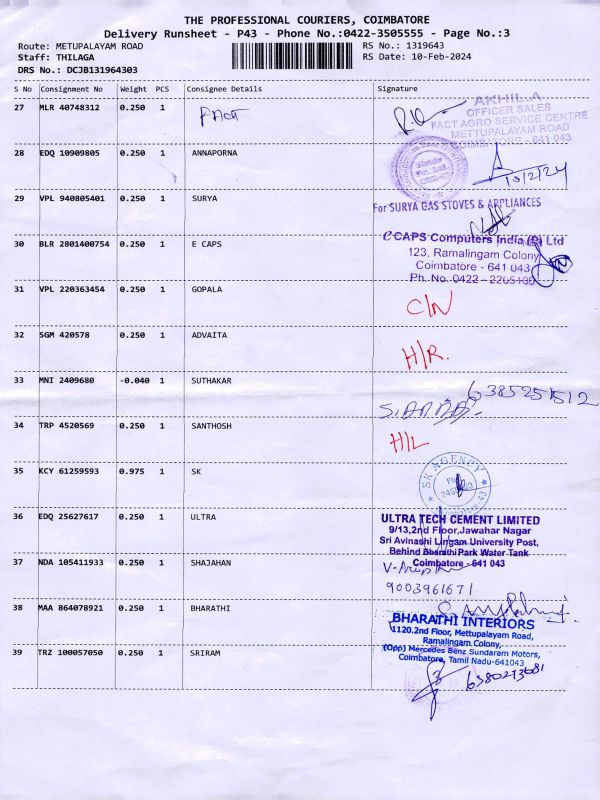 THE PROFESSIONAL COURIERS, COIMBATORE
Delivery Runsheet - P43 - Phone No.:0422-3505555 - Page No.:3
Route: METUPALAYAM ROAD
Staff: THILAGA
DRS No.: DCJB131964303
RS No.: 1319643
RS Date: 10-Feb-2024
S No Consignment No Weight PCS Consignee Details Signature
27 MLR 40748312 0.250 1 FACT
AKHIL.A
OFFICER SALES
FACT AGRO SERVICE CENTRE
METTUPALAYAM ROAD
COIMBATORE - 641 043
28 EDQ 10909805 0.250 1 ANNAPORNA
10/2/24
29 VPL 940805401 0.250 1 SURYA
For SURYA GAS STOVES & APPLIANCES
30 BLR 2801400754 0.250 1 E CAPS
eCAPS Computers India (P) Ltd
123, Ramalingam Colony
Coimbatore - 641 043
Ph. No. 0422 - 2205100
31 VPL 220363454 0.250 1 GOPALA
C/N
32 SGM 420578 0.250 1 ADVAITA
H/R.
33 MNI 2409680 -0.040 1 SUTHAKAR
6385251512
34 TRP 4520569 0.250 1 SANTHOSH
H/L
35 KCY 61259593 0.975 1 SK
SK AGENCY
36 EDQ 25627617 0.250 1 ULTRA
ULTRA TECH CEMENT LIMITED
9/13,2nd Floor,Jawahar Nagar
Sri Avinashi Lingam University Post,
Behind Bharathi Park Water Tank
Coimbatore - 641 043
37 NDA 105411933 0.250 1 SHAJAHAN
9003961671
38 MAA 864078921 0.250 1 BHARATHI
BHARATHI INTERIORS
1120.2nd Floor, Mettupalayam Road,
Ramalingam Colony,
(Opp) Mercedes Benz Sundaram Motors,
Coimbatore, Tamil Nadu-641043
39 TRZ 100057050 0.250 1 SRIRAM
6380213681